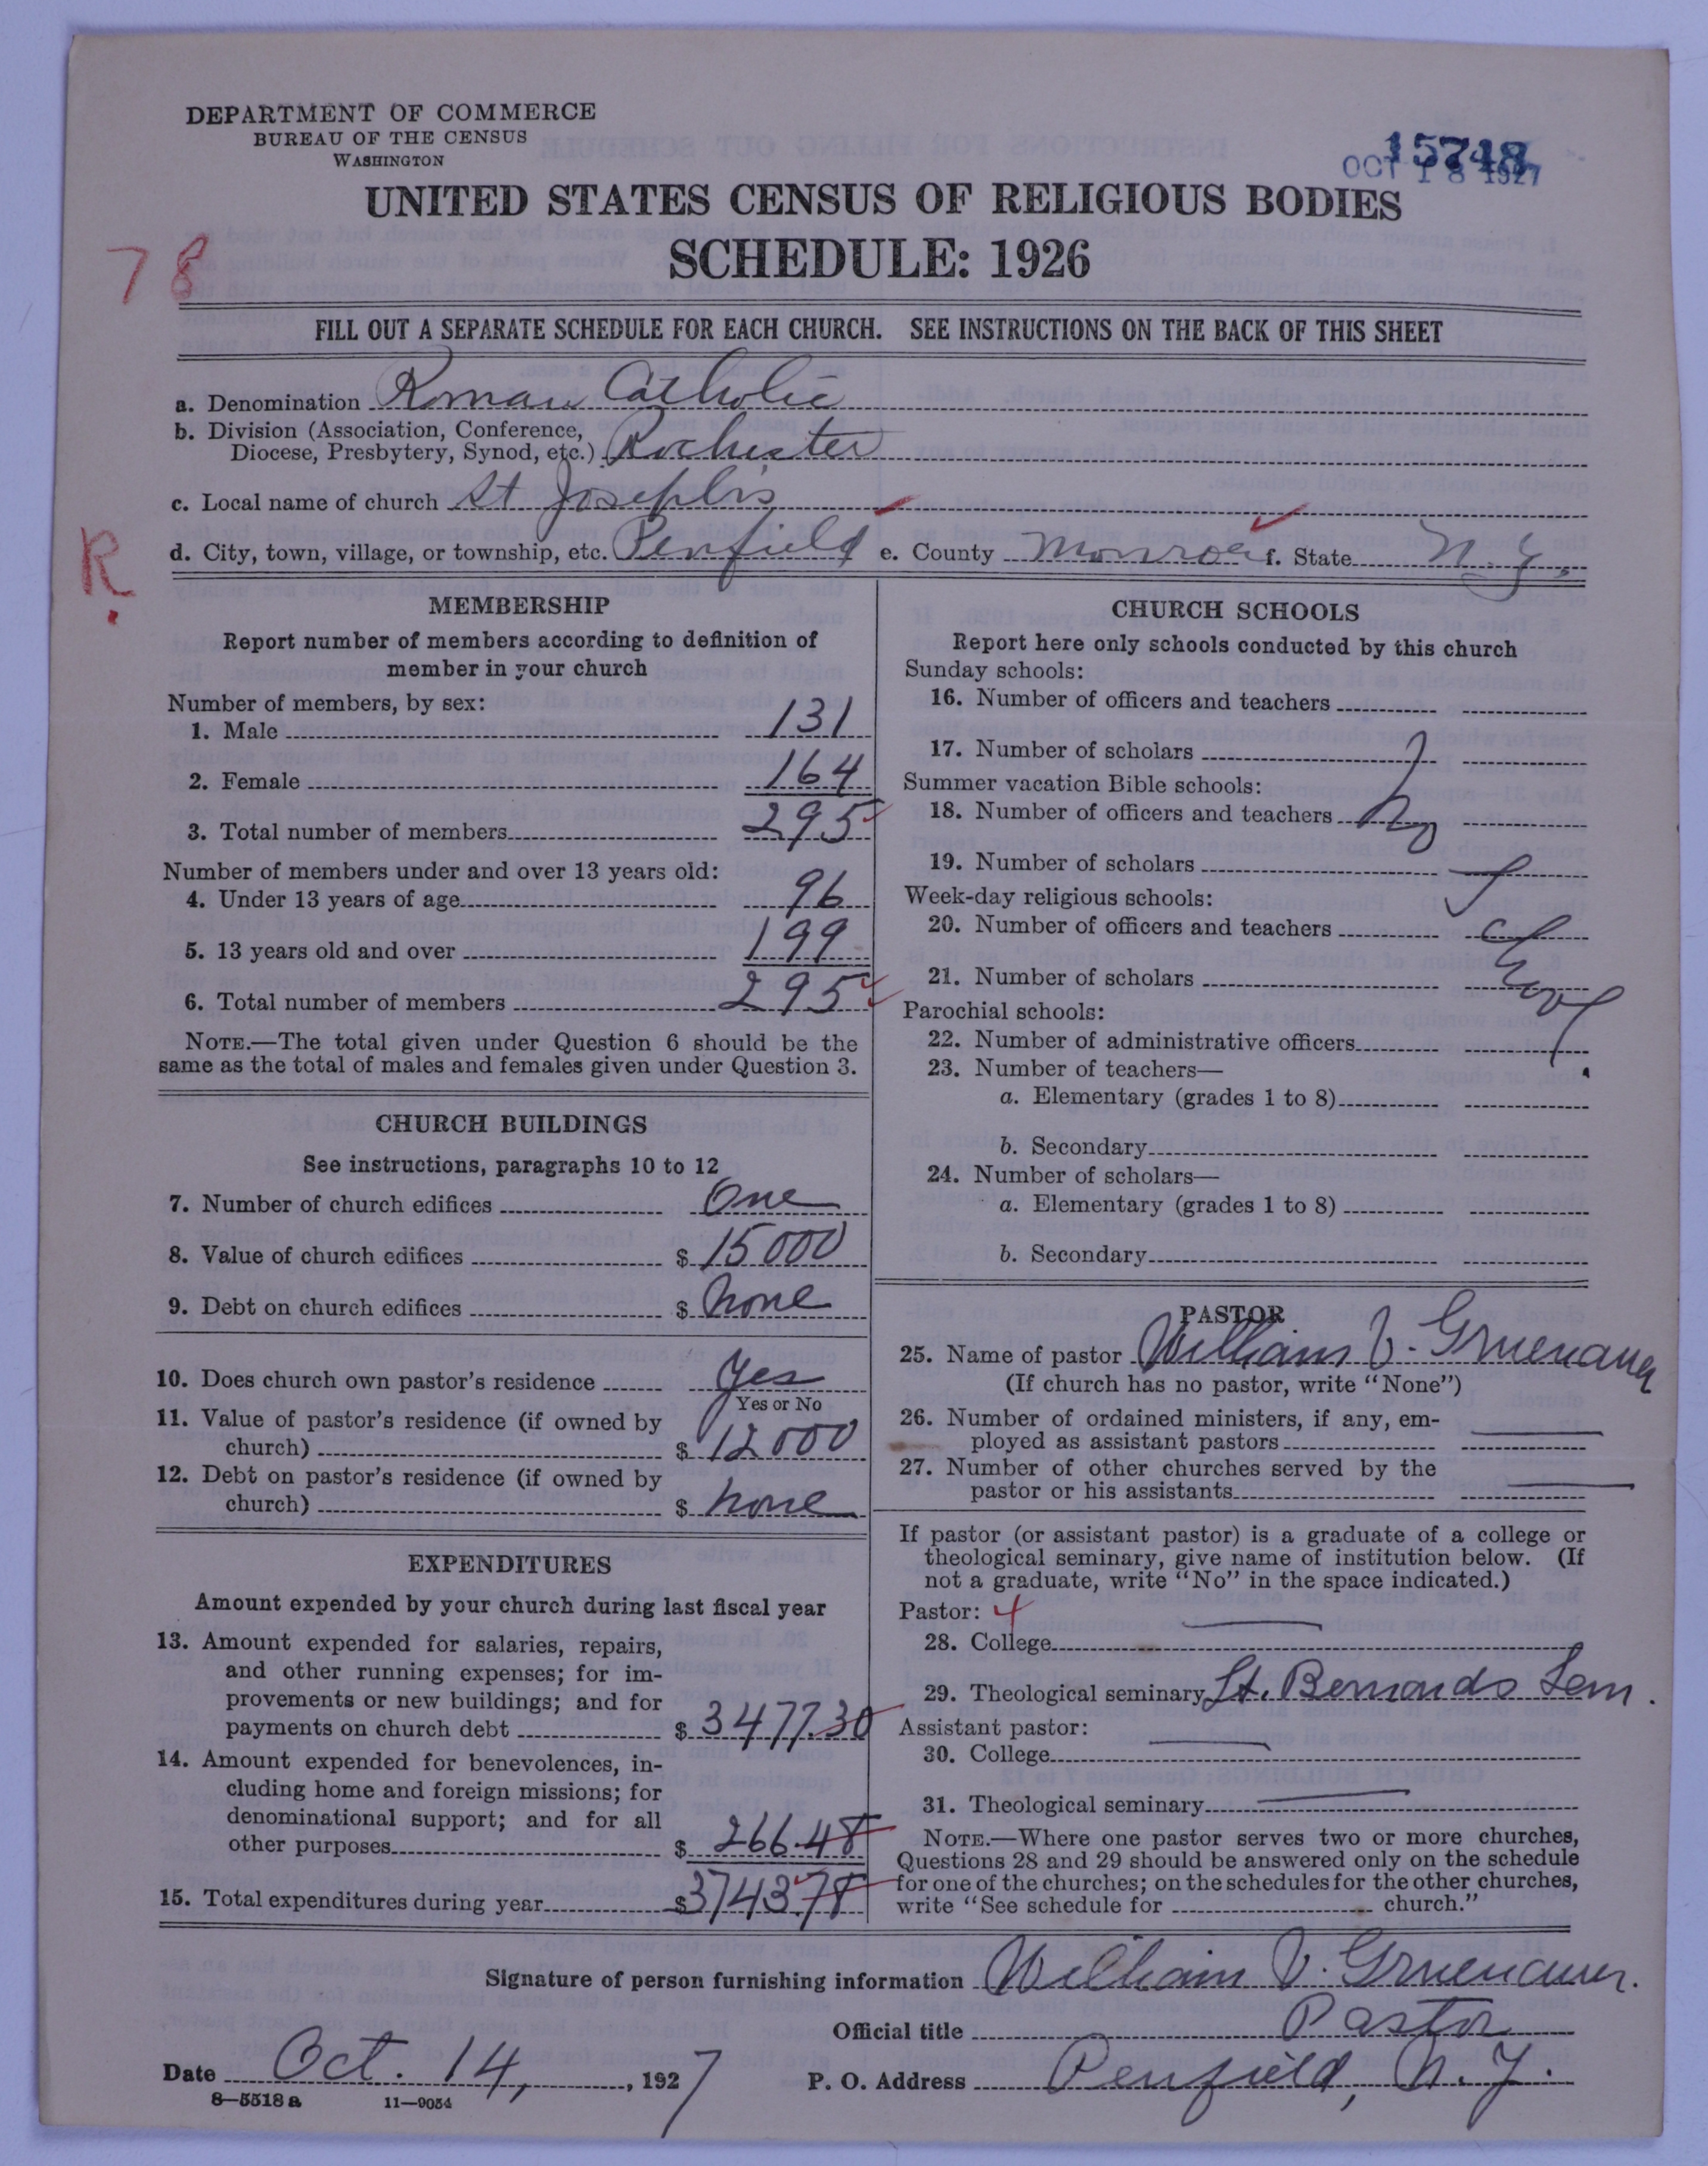 DEPARTMENT OF COMMERCE
BUREAU OF THE CENSUS
WASHINGTON
15748
OCT 18 1927
UNITED STATES CENSUS OF RELIGIOUS BODIES
SCHEDULE: 1926
78
FILL OUT A SEPARATE SCHEDULE FOR EACH CHURCH. SEE INSTRUCTIONS ON THE BACK OF THIS SHEET
a. Denomination Roman Catholic
b. Division (Association, Conference,
Diocese, Presbytery, Synod, etc.) Rochester
c. Local name of church St Joseph's
R.
d. City, town, village, or township, etc. Penfield e. County Monroe f. State N.Y.
MEMBERSHIP
Report number of members according to definition of
member in your church
Number of members, by sex:
1. Male 131
2. Female 164
3. Total number of members 295
Number of members under and over 13 years old:
4. Under 13 years of age 96
5. 13 years old and over 199
6. Total number of members 295
NOTE.—The total given under Question 6 should be the
same as the total of males and females given under Question 3.
CHURCH BUILDINGS
See instructions, paragraphs 10 to 12
7. Number of church edifices One
8. Value of church edifices $ 15000
9. Debt on church edifices $ None
10. Does church own pastor's residence Yes
Yes or No
11. Value of pastor's residence (if owned by
church) $ 12000
12. Debt on pastor's residence (if owned by
church) $ None
EXPENDITURES
Amount expended by your church during last fiscal year
13. Amount expended for salaries, repairs,
and other running expenses; for im-
provements or new buildings; and for
payments on church debt $ 3477.30
14. Amount expended for benevolences, in-
cluding home and foreign missions; for
denominational support; and for all
other purposes $ 266.48
15. Total expenditures during year $ 3743.78
CHURCH SCHOOLS
Report here only schools conducted by this church
Sunday schools:
16. Number of officers and teachers
17. Number of scholars
Summer vacation Bible schools:
18. Number of officers and teachers No
19. Number of scholars
Week-day religious schools:
20. Number of officers and teachers School
21. Number of scholars
Parochial schools:
22. Number of administrative officers
23. Number of teachers—
a. Elementary (grades 1 to 8)
b. Secondary
24. Number of scholars—
a. Elementary (grades 1 to 8)
b. Secondary
PASTOR
25. Name of pastor William V. Gruenauer
(If church has no pastor, write "None")
26. Number of ordained ministers, if any, em-
ployed as assistant pastors
27. Number of other churches served by the
pastor or his assistants
If pastor (or assistant pastor) is a graduate of a college or
theological seminary, give name of institution below. (If
not a graduate, write "No" in the space indicated.)
Pastor: 4
28. College
29. Theological seminary St. Bernards Sem.
Assistant pastor:
30. College
31. Theological seminary
NOTE.—Where one pastor serves two or more churches,
Questions 28 and 29 should be answered only on the schedule
for one of the churches; on the schedules for the other churches,
write "See schedule for church."
Signature of person furnishing information William V. Gruenauer.
Official title Pastor
Date Oct. 14, 1927 P. O. Address Penfield, N.Y.
8—5518 a 11—9054